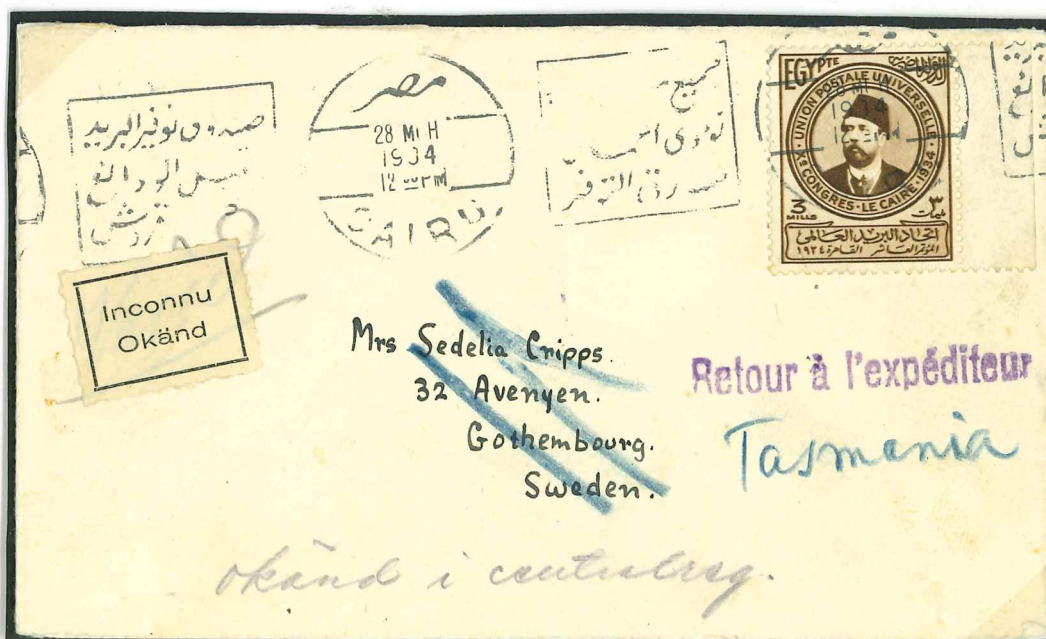 صندوق توفير البريد
مصر
28 MCH
1934
12 00 PM
CAIRO
جميع
صندوق التوفير
EGYPTE
UNION POSTALE UNIVERSELLE
Xᵉ CONGRES · LE CAIRE · 1934
3
MILLS
٣
مليمات
إتحاد البريد العالمى
المؤتمر العاشر القاهرة ١٩٣٤
Inconnu
Okänd
Mrs Sedelia Cripps.
32 Avenyen.
Gothembourg.
Sweden.
Retour à l'expéditeur
Tasmania
okänd i centralreg.